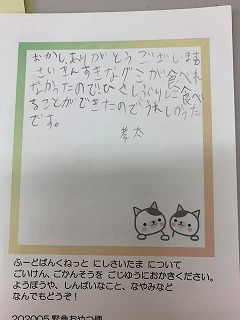 おかし、ありがとうございます
さいきんすきなグミが食べれ
なかったのでひとしぶりに食べ
ることができたのでうれしかった
です。
孝太
ふーどばんくねっと にしさいたま について
ごいけん、ごかんそうを ごじゆうにおかきください。
ようぼうや、しんぱいなこと、なやみなど
なんでもどうぞ！
202005緊急おやつ便